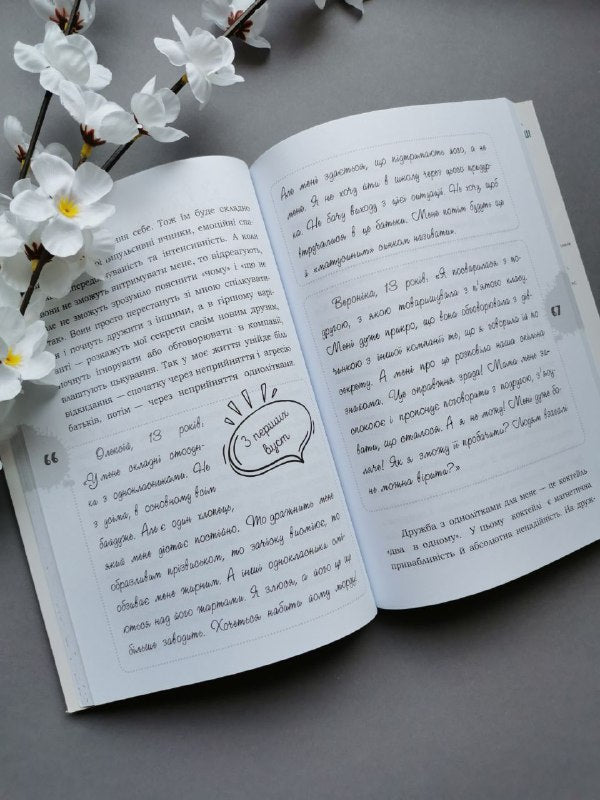 ння себе. Тож їм буде складно
імпульсивні вчинки, емоційні спа-
та інтенсивність. А коли
вони не зможуть витримувати мене, то відреагують,
але не зможуть зрозуміло пояснити «чому» і «що не
так». Вони просто перестануть зі мною спілкувати-
ся і почнуть дружити з іншими, а в гіршому варі-
анті — розкажуть мої секрети своїм новим друзям,
почнуть ігнорувати або обговорювати в компанії,
влаштують цькування. Так у моє життя увійде біль
відкидання — спочатку через неприйняття і агресію
батьків, потім — через неприйняття однолітками.
66
Олексій, 13 років:
«У мене складні стосун-
ки з однокласниками. Не
з усіма, в основному всім
байдуже. Але є один хлопець,
який мене дістає постійно. То дражнить мене
образливим прізвиськом, то зачіску висміює, то
обзиває мене жирним. А інші однокласники смі-
ються над його жартами. Я злюся, а його це ще
більше заводить. Хочеться набити йому морду!
З перших
вуст
Але мені здається, що підтримають його, а не
мене. Я не хочу йти в школу через цього придур-
ка. Не бачу виходу з цієї ситуації. Не хочу, щоб
втручалися в це батьки. Мене потім будуть ще
й «матусиним» синком називати».
Вероніка, 13 років: «Я посварилася з по-
другою, з якою товаришувала з п'ятого класу.
Мені дуже прикро, що вона обговорювала з дів-
чинкою з іншої компанії те, що я говорила їй по
секрету. А мені про це розповіла наша спільна
знайома. Це справжня зрада! Мама мене за-
спокоює і пропонує поговорити з подругою, з'ясу-
вати, що сталося. А я не можу! Мені дуже бо-
ляче! Як я зможу її пробачити? Людям взагалі
не можна вірити?»
67
Дружба з однолітками для мене — це коктейль
«два в одному». У цьому коктейлі є магнетична
привабливість й абсолютна ненадійність. На друж-